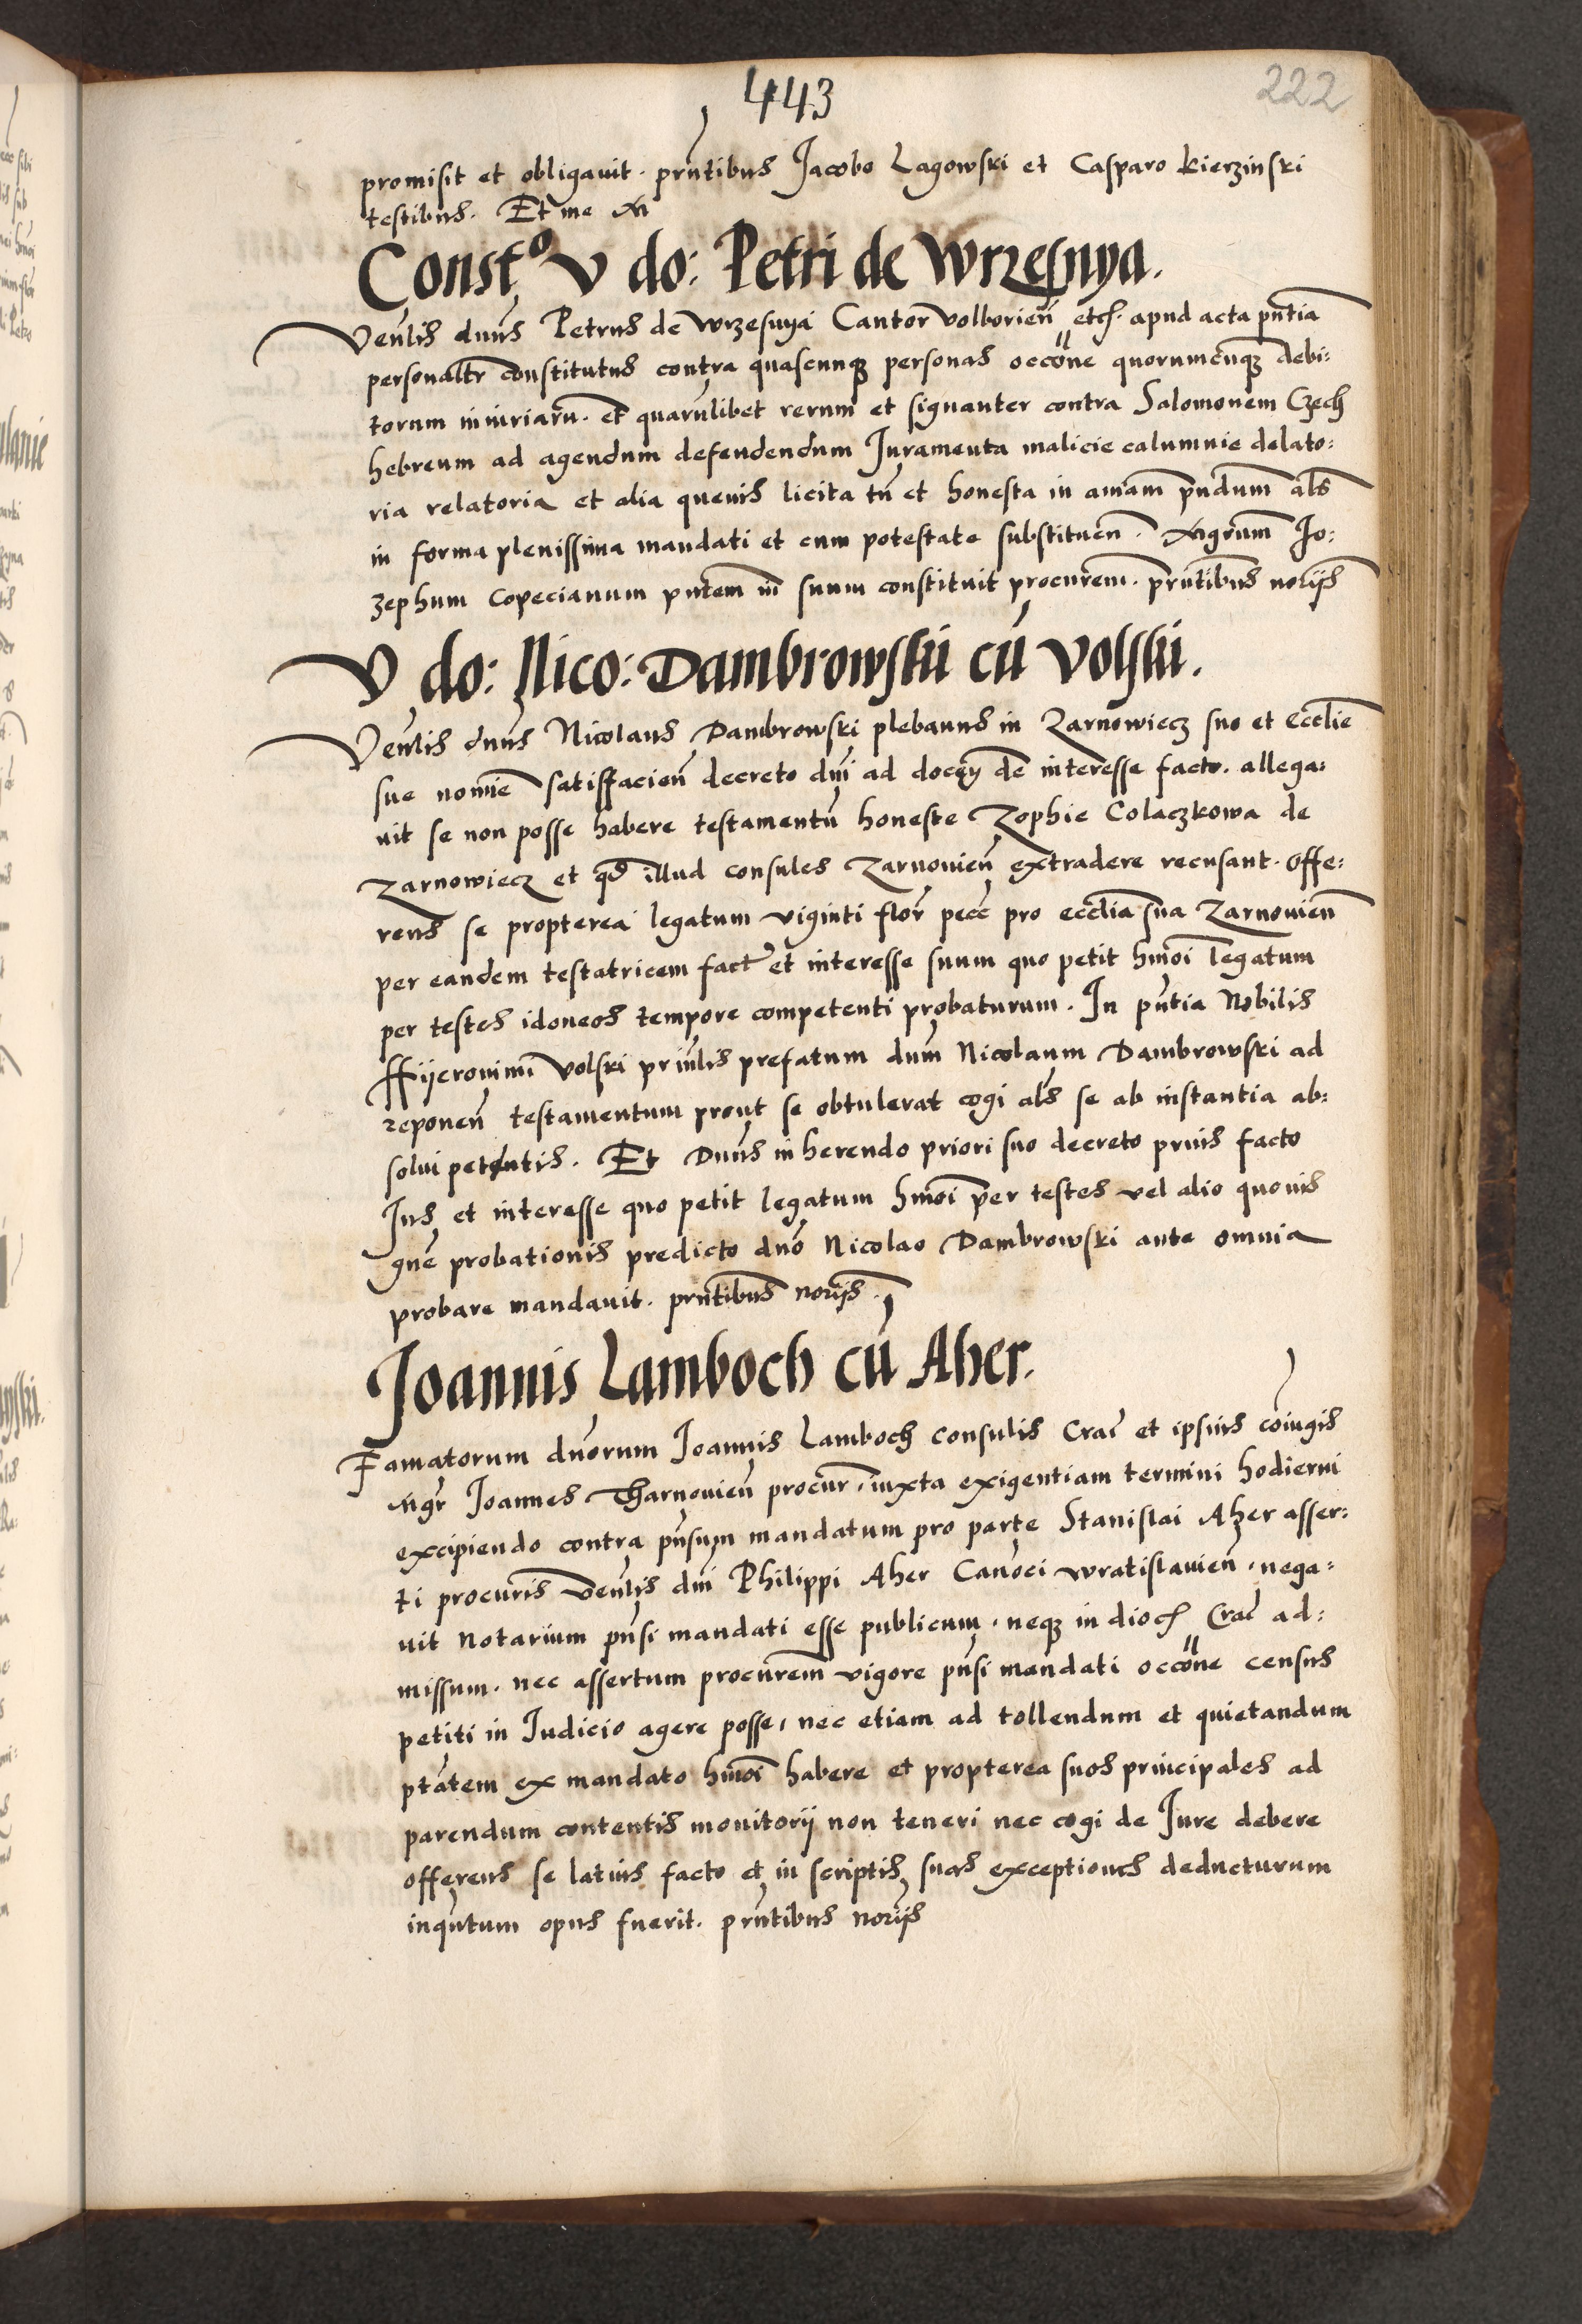 443
222
promisit et obligavit. prntibus Jacobo Lagowski et Casparo Kierzinski
testibus. Et me
Constō V do: Petri de Wrzesnya.
Venlis dnus Petrus de Wrzesnya Cantor Volborien etcȝ. apud acta pntia
personaltr constitutus contra quascunqȝ personas occone quorumcunqȝ debi:
torum iniuriaru. et quarulibet rerum et signanter contra Salomonem Czech
hebreum ad agendum defendendum Juramenta malicie calumnie delato:
ria relatoria et alia quevis licita tn et honesta in amam pndum als
in forma plenissima mandati et cum potestate substituen. Mgrum Jo:
zephum Copecianum pntem in suum constituit procurem. prntibus noriis
V do: Nico: Dambrowskii cu Volskii.
Venlis dnus Nicolaus Dambrowski plebanus in Zarnowiecz suo et Ecclie
sue nomie satisfacien decreto dni ad docen de interesse facto. allega:
vit se non posse habere testamentu honeste Zophie Colaczkowa de
Zarnowiecz et qd illud consules Zarnovien extradere recusant. Offe:
rens se propterea legatum viginti flor pecc pro ecclia sua Zarnovien
per eandem testatricem fact et interesse suum quo petit hmoi legatum
per testes idoneos tempore competenti probaturum. In pntia Nobilis
Hyeronimi Volski privlis prefatum dnm Nicolaum Dambrowski ad
reponen testamentum prout se obtulerat cogi als se ab instantia ab:
solvi petentis. Et Dnus in herendo priori suo decreto prius facto
Jus et interesse quo petit legatum hmoi per testes vel alio quovis
gne probationis predicto dno Nicolao Dambrowski ante omnia
probare mandavit. prntibus noriis.
Joannis Lamboch cu Aher.
Famatorum dnorum Joannis Lamboch consulis Crac et ipsius coiugis
Mgr Joannes Tharnovien procur, iuxta exigentiam termini hodierni
excipiendo contra pnsum mandatum pro parte Stanislai Aher asser:
ti procuris Venlis dni Philippi Aher Canoci wratislavien, nega:
vit Notarium pnsi mandati esse publicum, neqȝ in diocȝ Crac ad:
missum. nec assertum procurem vigore pnsi mandati occone census
petiti in Judicio agere posse, nec etiam ad tollendum et quietandum
ptatem ex mandato hmoi habere et propterea suos principales ad
parendum contentis monitorii non teneri nec cogi de Jure debere
offerens se latius facto et in scriptis suas exceptiones deducturum
inqntum opus fuerit. prntibus noriis